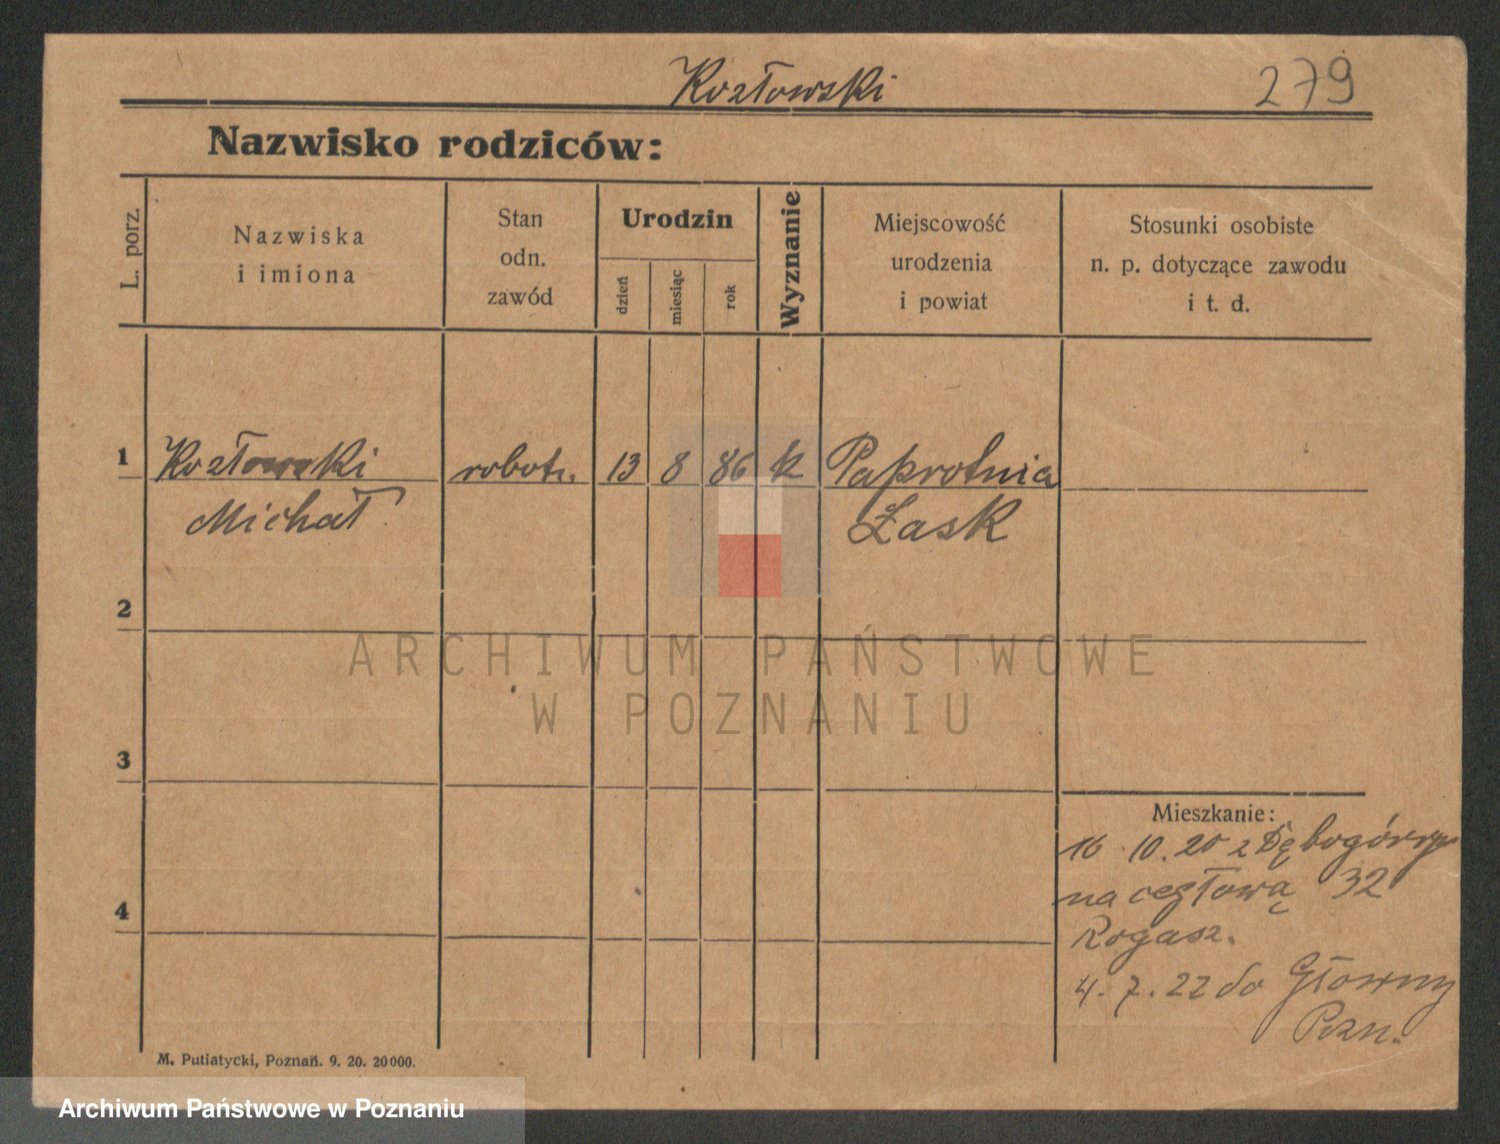 Kozłowski
279
Nazwisko rodziców:
L. porz.
Nazwiska
i imiona
Stan
odn.
zawód
Urodzin
dzień
miesiąc
rok
Wyznanie
Miejscowość
urodzenia
i powiat
Stosunki osobiste
n. p. dotyczące zawodu
i t. d.
1 Kozłowski robotn. 13 8 86 k Paprotnia
Michał Łask
2
3
4
Mieszkanie:
16.10.20 z Dębogóry
na cegłową 32
Rogasz.
4.7.22 do Główny
Pozn.
M. Putiatycki, Poznań. 9. 20. 20000.
ARCHIWUM PAŃSTWOWE
W POZNANIU
Archiwum Państwowe w Poznaniu